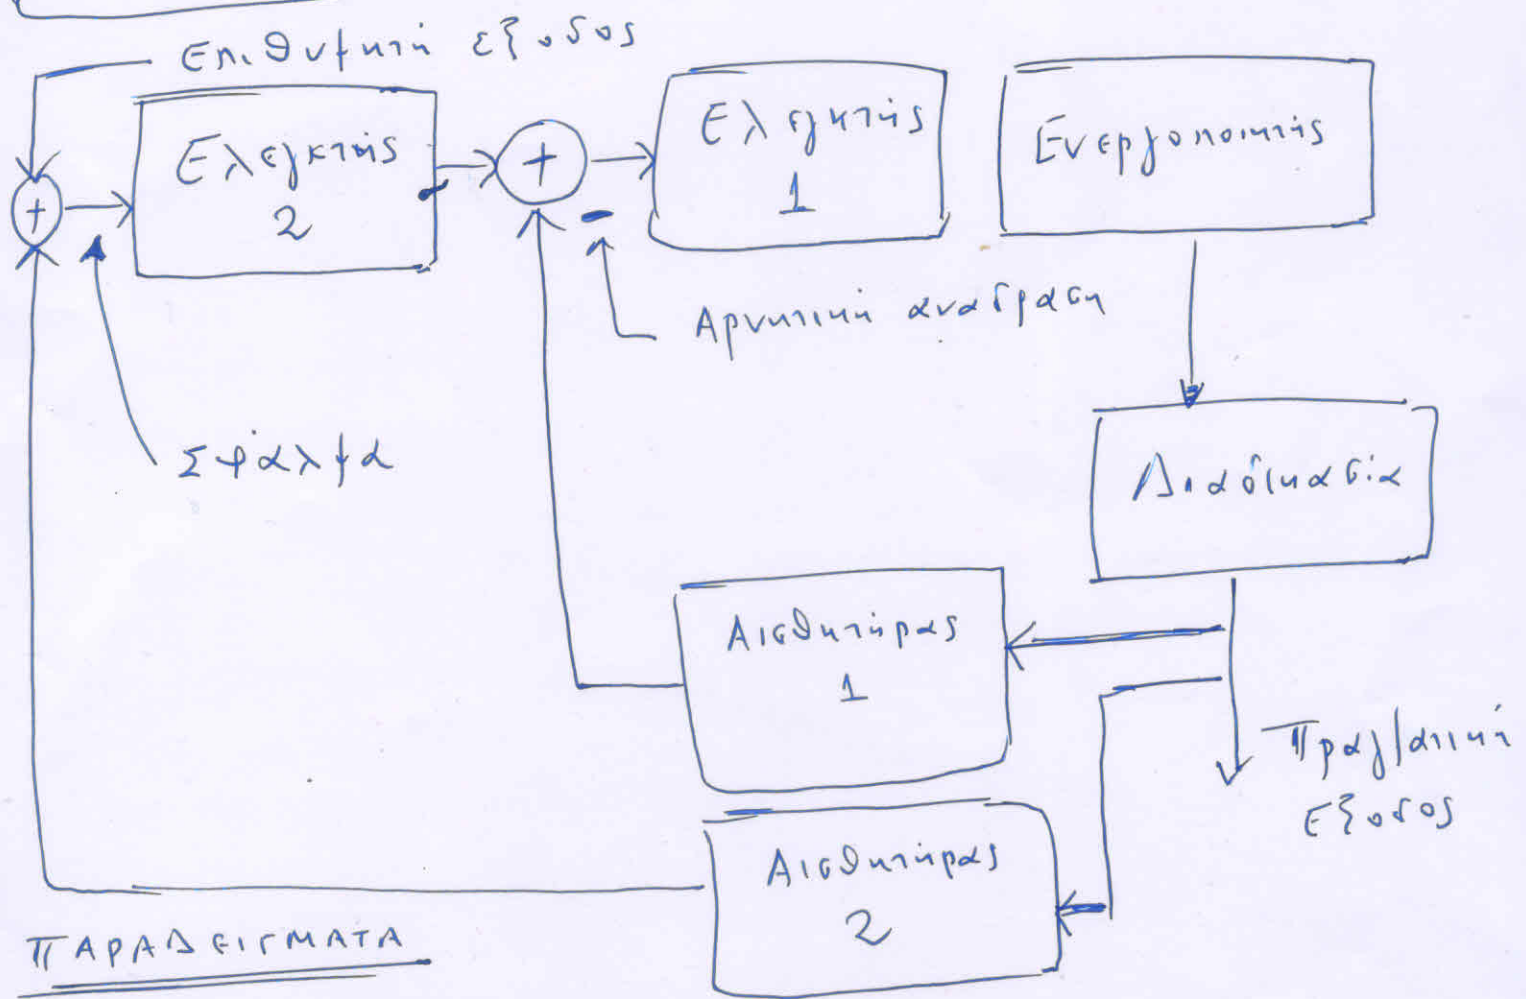 Επιθυμητή έξοδος
+
Ελεγκτής
2
+
-
Ελεγκτής
1
Ενεργοποιητής
Αρνητική ανάδραση
Σφάλμα
Διαδικασία
Αισθητήρας
1
Πραγματική
έξοδος
Αισθητήρας
2
ΠΑΡΑΔΕΙΓΜΑΤΑ